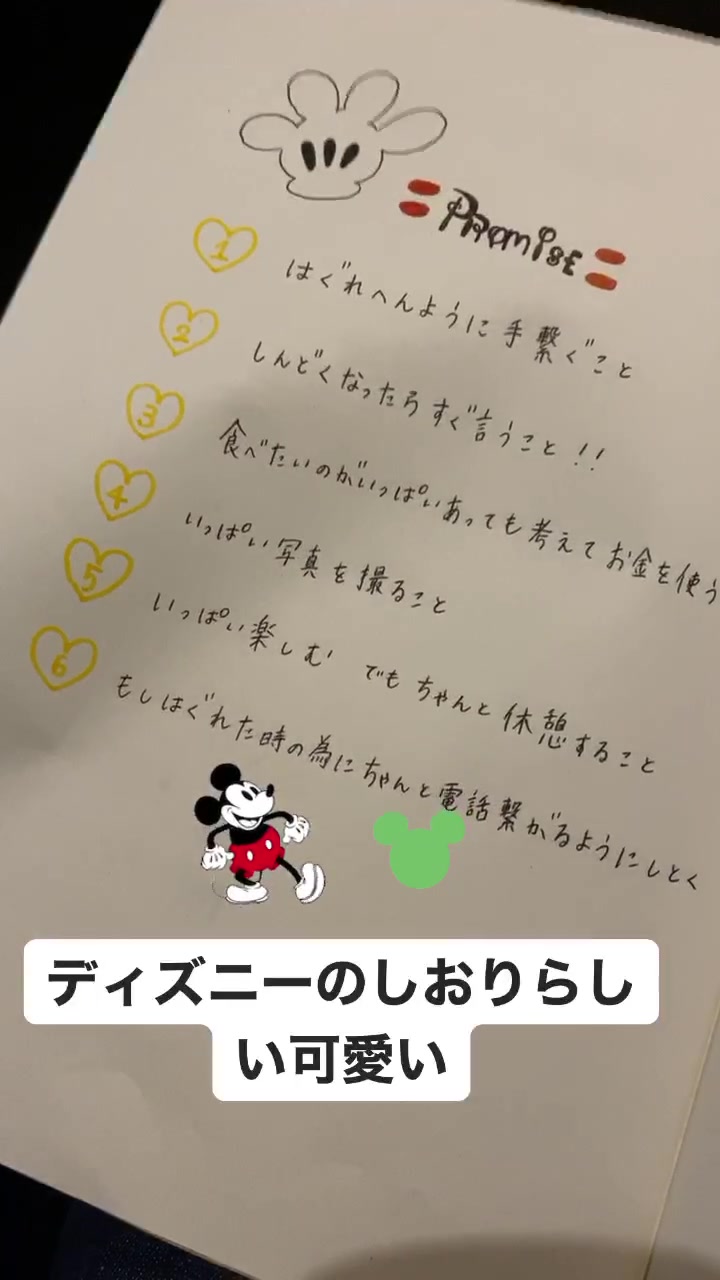 =PROMISE=
1 はぐれへんように手繋ぐこと
2 しんどくなったらすぐ言うこと!!
3 食べたいのがいっぱいあっても考えてお金を使う
4 いっぱい写真を撮ること
5 いっぱい楽しむ でもちゃんと休憩すること
6 もしはぐれた時の為にちゃんと電話繋がるようにしとく
ディズニーのしおりらし
い可愛い